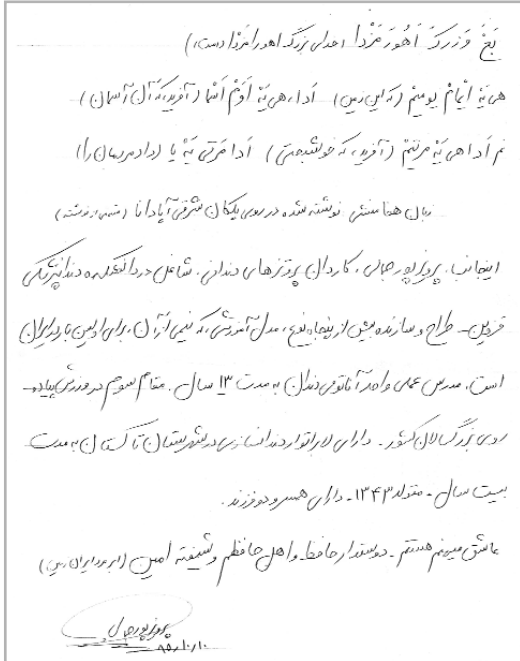 بَغَ وَزرکَ اَهُورَمَزدا (خدای بزرگ اهورامزدا است)
هی یَهْ ایمامْ بومیمْ (که این زمین) اَدا، هی یَهْ اَوَمْ اَسْما (آفرید، که آن آسمان)
اَدا هی یَهْ (آفرید، که خوشبختی) اَدا مَرتی یَهْ یا (داد مردمان را)
زبان هخامنشی نوشته شده در روی پلکان شرقی آپادانا
اینجانب، پرویز پورجمالی، کاردان پروتزهای دندانی، شاغل در دانشکده دندانپزشکی
قزوین ـ طراح و سازنده بیش از پنجاه نوع، مدل آموزشی، که نیمی از آن، برای اولین بار در ایران
است. مدرس عملی واحد آناتومی دندان به مدت ۱۳ سال. مقام سوم در ورزش پیاده
روی بزرگسالان کشور ـ دارای لابراتوار دندانسازی در شهرستان تاکستان به مدت
بیست سال ـ متولد ۱۳۴۳ ـ دارای همسر و دو فرزند.
عاشق میهنم هستم ـ دوستدار حافظ و اهل حافظم و شیفته امین
پرویز پورجمالی
۸۵/۱۰/۱۰